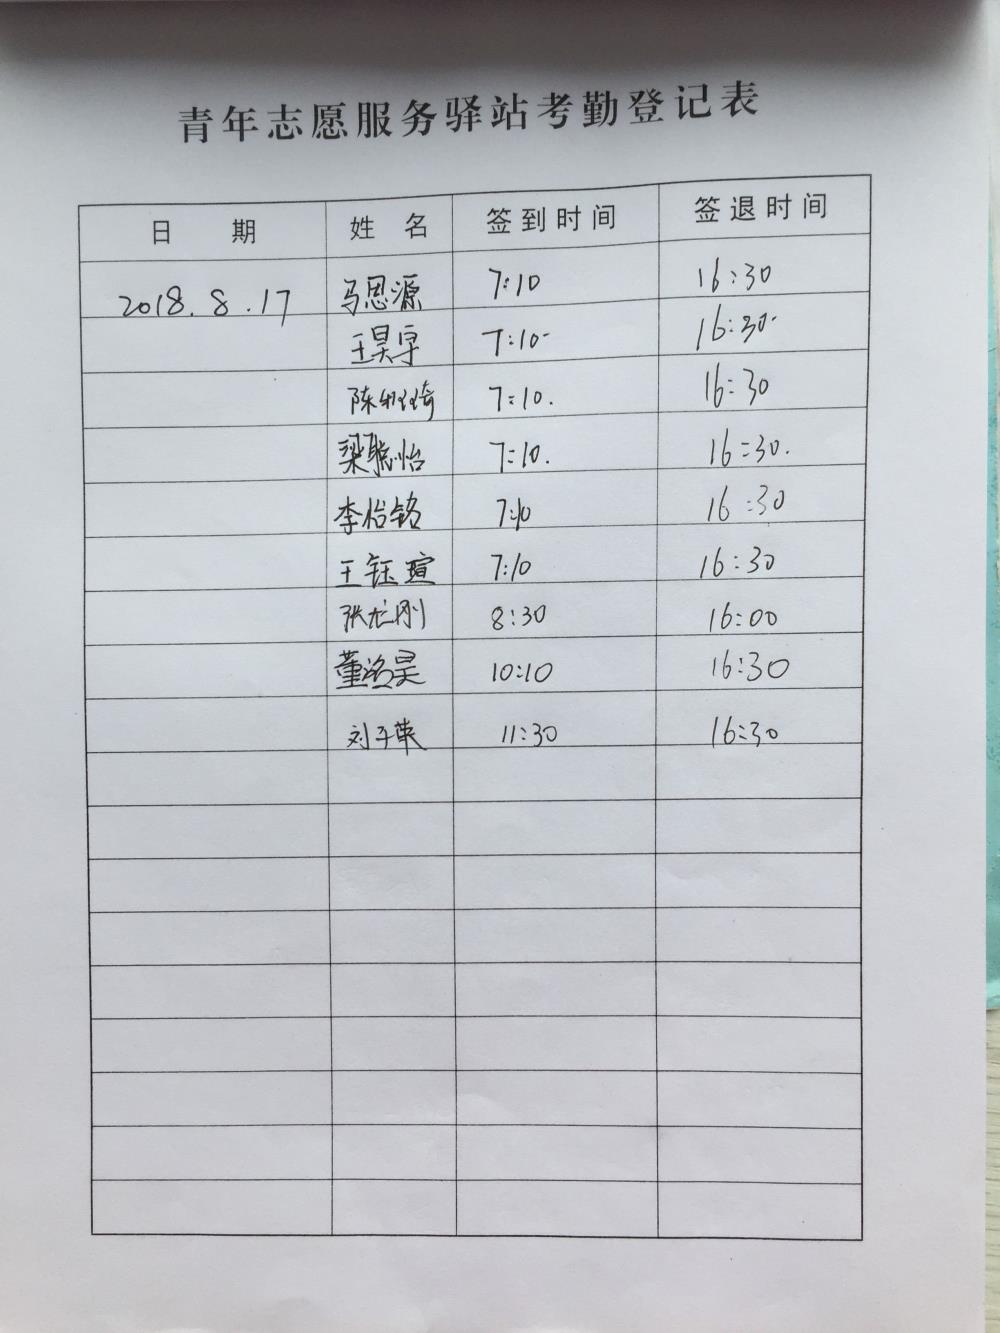 青年志愿服务驿站考勤登记表
日 期 姓 名 签到时间 签退时间
2018.8.17 马思源 7:10 16:30
王昊宇 7:10 16:30
陈 7:10. 16:30
梁聪怡 7:10. 16:30.
李怡铭 7:10 16:30
王钰瑄 7:10 16:30
张 刚 8:30 16:00
董 昊 10:10 16:30
刘子英 11:30 16:30